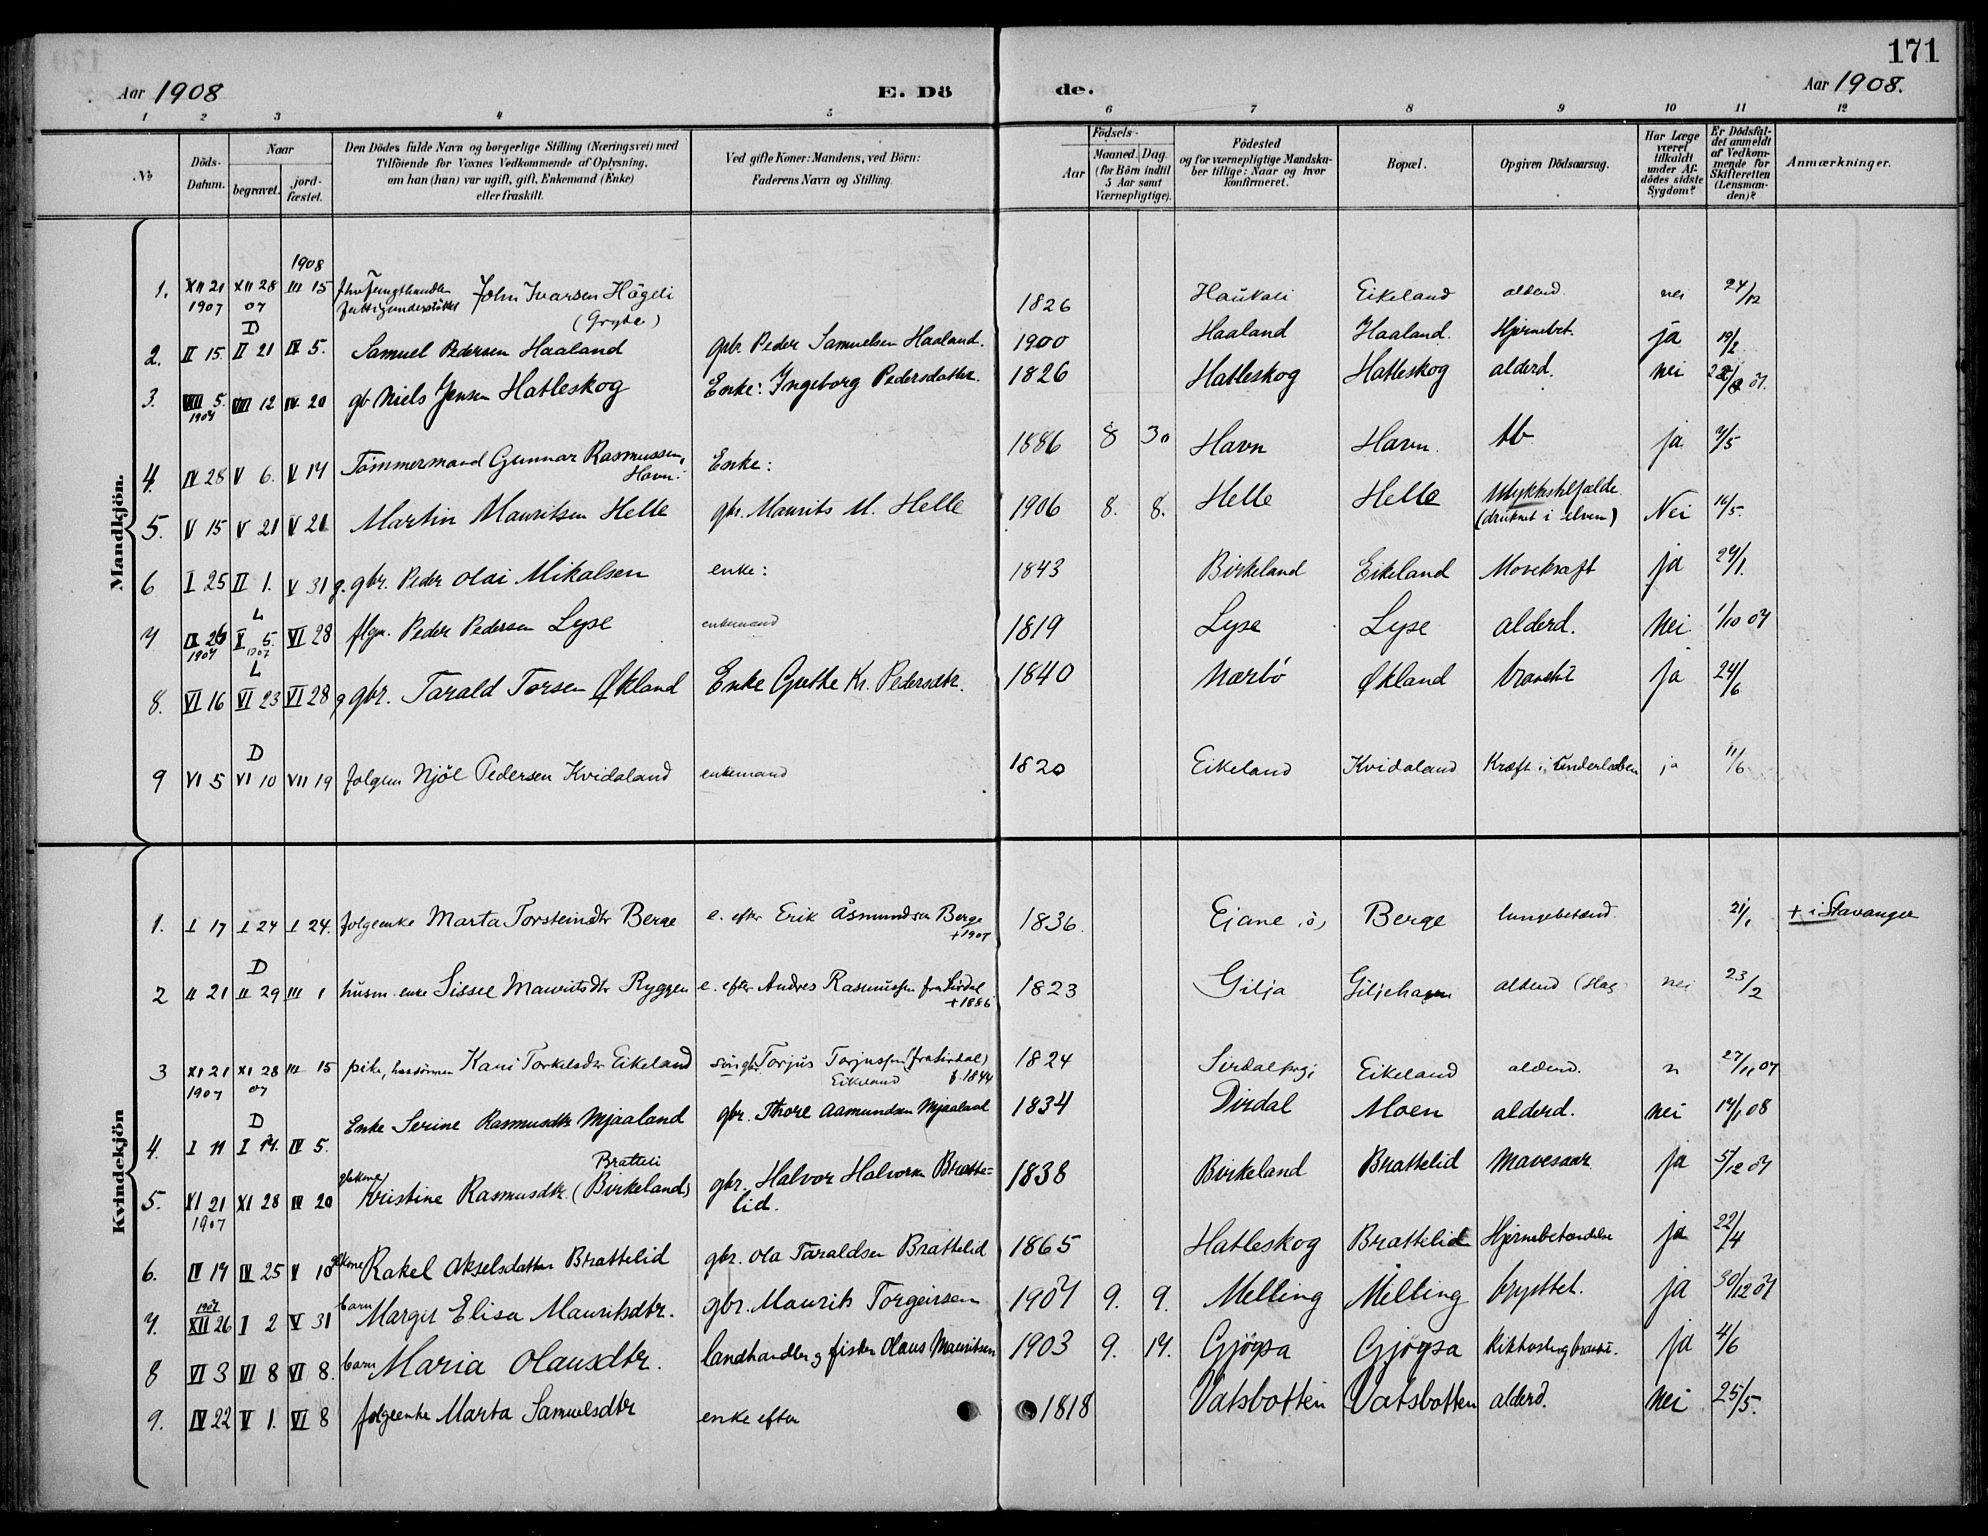 171
Aar 1908
E. Dö de.
Aar 1908.
1 2 3 4 5 6 7 8 9 10 11 12
No
Döds-Datum.
Naar
begravet.
jord-fæstet.
Den Dödes fulde Navn og borgerlige Stilling (Næringsvei) med
Tilföiende for Voxnes Vedkommende af Oplysning,
om han (hun) var ugift, gift, Enkemand (Enke)
eller fraskilt.
Ved gifte Koner: Mandens, ved Börn:
Faderens Navn og Stilling.
Födsels-
Aar
Maaned. Dag.
(for Börn indtil
5 Aar samt
Værnepligtige).
Födested
og for værnepligtige Mandska-
ber tillige: Naar og hvor
konfirmeret.
Bopæl.
Opgiven Dödsaarsag.
Har Læge
været
tilkaldt
under Af-
dödes sidste
Sygdom?
Er Dödsfal-
det anmeldt
af Vedkom-
mende for
Skifteretten
(Lensman-
den)?
Anmærkninger.
Mandkjön.
1908
1. XII 21 1907 XII 28 07 III 15 John Ivarsen Högeli 1826 Haukali Eikeland alderd. nei 24/12
2. II 15. D II 21 IV 5. Samuel Pedersen Haaland gbr. Peder Samuelsen Haaland. 1900 Haaland Haaland. Hjernebet. ja 19/2
3. VIII 5. 1907 VIII 12 IV 20 gb Niels Jensen Hatleskog Enke: Ingeborg Pedersdatter. 1826 Hatleskog Hatleskog alderd. nei
4. IV 28 V 6. V 17 Tömmermand Gunnar Rasmussen, Havn. Enke: 1886 8 30 Havn Havn. tb ja 4/5
5. V 15 V 21 V 21 Martin Mauritsen Helle gbr. Maurits M. Helle 1906 8. 8. Helle Helle Ulykkestilfælde (druknet i elven) Nei 16/5.
6 I 25 II 1. V 31 g. gbr. Peder Olai Mikalsen enke: 1843 Birkeland Eikeland Mavekræft ja 29/1.
7 IX 26 1907 L X 5. 1907 VI 28 flgm. Peder Pedersen Lyse enkemand 1819 Lyse Lyse alderd. Nei 1/10 07
8. VI 16 L VI 23 VI 28 g gbr. Tarald Torsen Økland Enke Guthe Kr. Pedersdtr. 1840 Nærbö Økland bronchit ja 24/6
9 VI 5 D VI 10 VII 19 folgem Njöl Pedersen Kvidaland enkemand 1820 Eikeland Kvidaland Kræft i underlæben ja 11/6
Kvindekjön
1. I 17 I 24 I 24. folgeenke Marta Torsteindtr Berge e. efter Erik Åsmundsen Berge +1907 1836. Ejane Berge lungebetænd. 21/1 + i Stavanger
2 II 21 D II 29 III 1 husm. enke Sissel Mauritsdtr Ryggen e. efter Andres Rasmussen fra Sirdal +1886 1823 Gilja Giljehagen alderd nei 23/2
3 XI 21 1907 XI 28 07 III 15 pike, Kari Torkelsdtr Eikeland Torjus Torjussen (fra Sirdal) Eikeland 1824 Eikeland alderd. n 27/11 07
4. I 11 D I 17. IV 5. Enke Serine Rasmusdtr Mjaaland gbr. Thore Aamundsen Mjaaland 1834 Dirdal Moen alderd. nei 17/1 08
5. XI 21 1907 XI 28 IV 20 gbkone Kristine Rasmusdtr. Bratteli (Birkeland) gbr. Halvor Halvorsen Bratte=lid. 1838 Birkeland Brattelid Mavesaar ja 5/12 07
6. IV 19 IV 25 V 10 gbkone Rakel Akselsdatter Brattelid gbr. Ola Taraldsen Brattelid 1865 Hatleskog Brattelid Hjernebetændelse ja 22/4
7. 1907 XII 26 I 2 V 31 barn Margit Elisa Mauritsdtr. gbr. Maurits Torgeirsen 1907 9. 9. Melling Melling bryttet. ja 30/12 07
8 VI 3 VI 8 VI 8. barn Maria Olausdtr. landhandler g fisker Olaus Mauritsen 1903 9. 17. Gjøysa Gjøysa ja 4/6
9. IV 22 V 1. VI 8 folgeenke Marta Samuelsdtr enke efter 1818 Vatsbotten Vatsbotten alderd. nei 25/5.